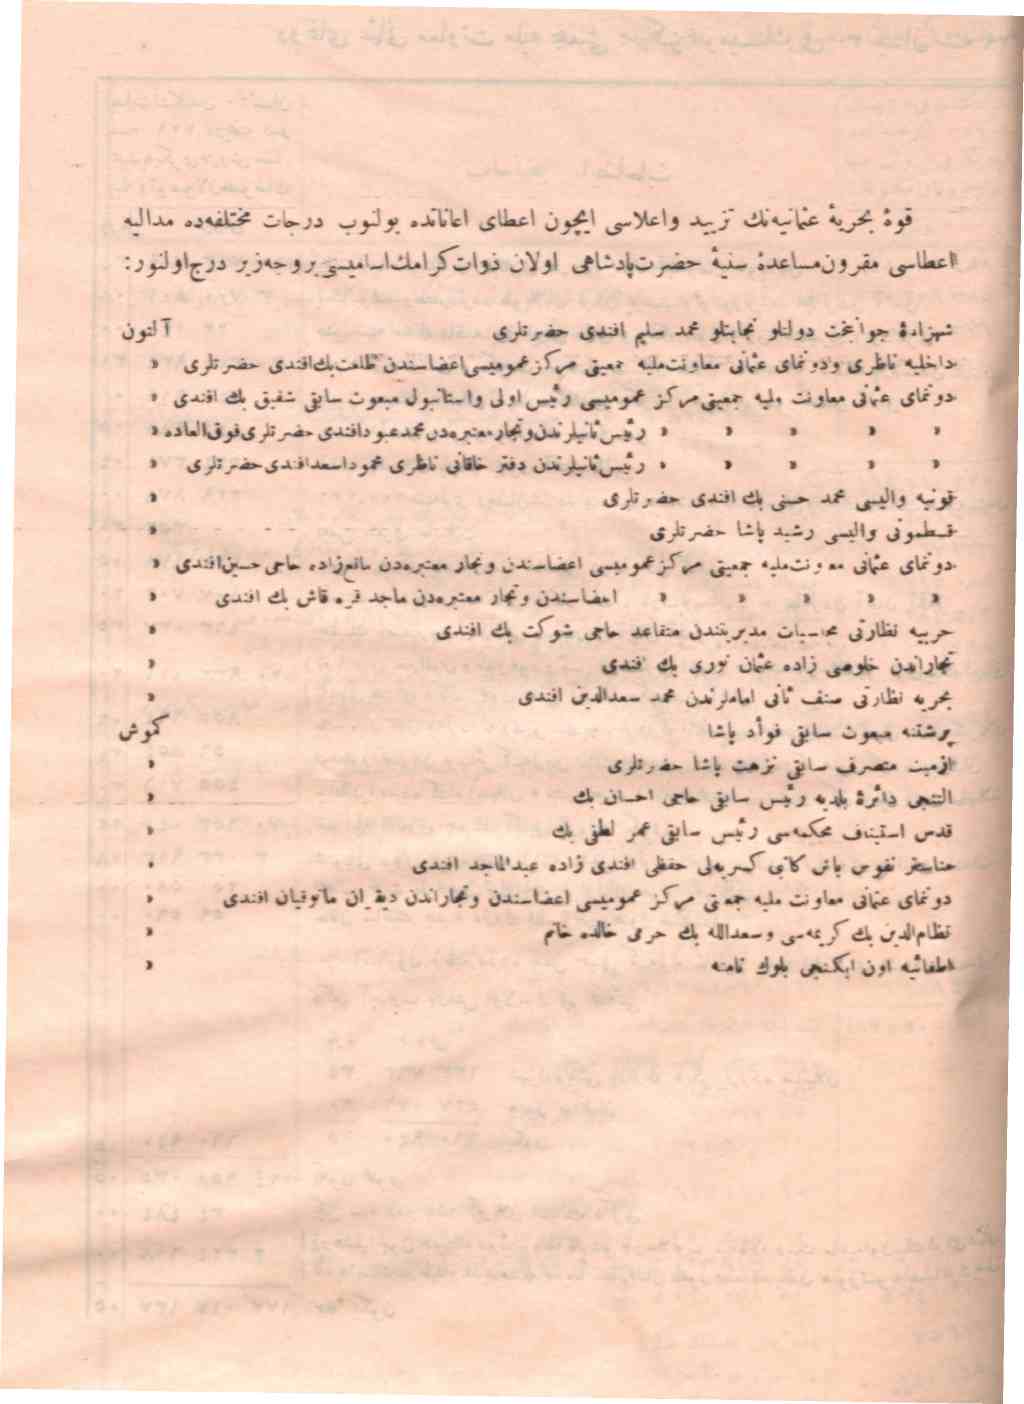 قوهٔ بحریهٔ عثمانیه‌نك تزیید واعلاسی ایچون اعطای اعاناتده بولنوب درجات مختلفه‌ده مدالیه
اعطاسی مقرون مساعدهٔ سنیهٔ حضرت پادشاهی اولان ذوات كرامك اسامیسی بروجه‌زیر درج اولنور:
شهزادهٔ جوانبخت دولتلو نجابتلو محمد سلیم افندی حضرتلری آلتون
داخلیه ناظری ودوننمای عثمانی معاونت ملیه جمعیتی مركز عمومیسی اعضاسندن طلعت بك افندی حضرتلری »
دوننمای عثمانی معاونت ملیه جمعیتی مركز عمومیسی رئیس اولی واستانبول مبعوث سابقی شفیق بك افندی »
» » » » » رئیس ثانیلرندن وتجار معتبره‌دن محمد عبود افندی حضرتلری فوق العاده »
» » » » » رئیس ثانیلرندن دفتر خاقانی ناظری محمود اسعد افندی حضرتلری »
قونیه والیسی محمد حسنی بك افندی حضرتلری »
قسطمونی والیسی رشید پاشا حضرتلری »
دوننمای عثمانی معاونت ملیه جمعیتی مركز عمومیسی اعضاسندن وتجار معتبره‌دن مانع‌زاده حاجی حسین افندی »
» » » » » اعضاسندن وتجار معتبره‌دن ماجد قره قاش بك افندی »
حربیه نظارتی محاسبات مدیریتندن متقاعد حاجی شوكت بك افندی »
تجاراندن خلوصی زاده عثمان نوری بك افندی »
بحریه نظارتی صنف ثانی اماملرندن محمد سعدالدین افندی »
پرشتنه مبعوث سابقی فوأد پاشا كموش
ازمیت متصرف سابقی نزهت پاشا حضرتلری »
التنجی دائرهٔ بلدیه رئیس سابقی حاجی احسان بك »
قدس استیناف محكمه‌سی رئیس سابقی عمر لطفی بك »
مناستر نفوس باش كاتبی كسریه‌لی حفظی افندی زاده عبدالماجد افندی »
دوننمای عثمانی معاونت ملیه جمعیتی مركز عمومیسی اعضاسندن وتجاراندن دیقران مانوقیان افندی »
نظام‌الدین بك كریمه‌سی وسعدالله بك حرمی خالده خانم »
اطفائیه اون ایكنجی بلوك نامنه »